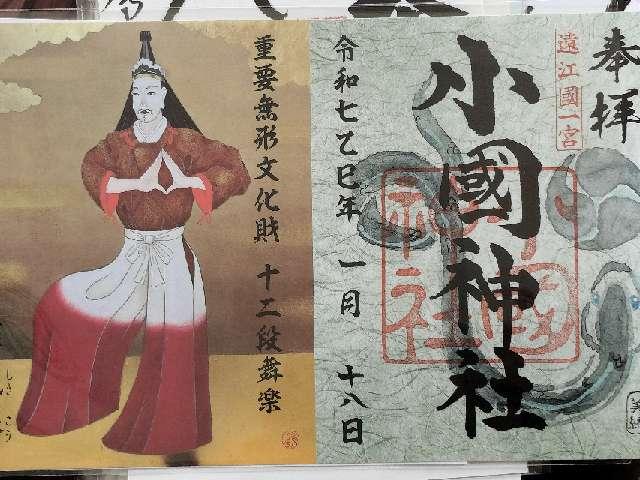 奉拝
遠江國一宮
小國神社
令和七乙巳年 一月 十八日
重要無形文化財 十二段舞楽
小國神社